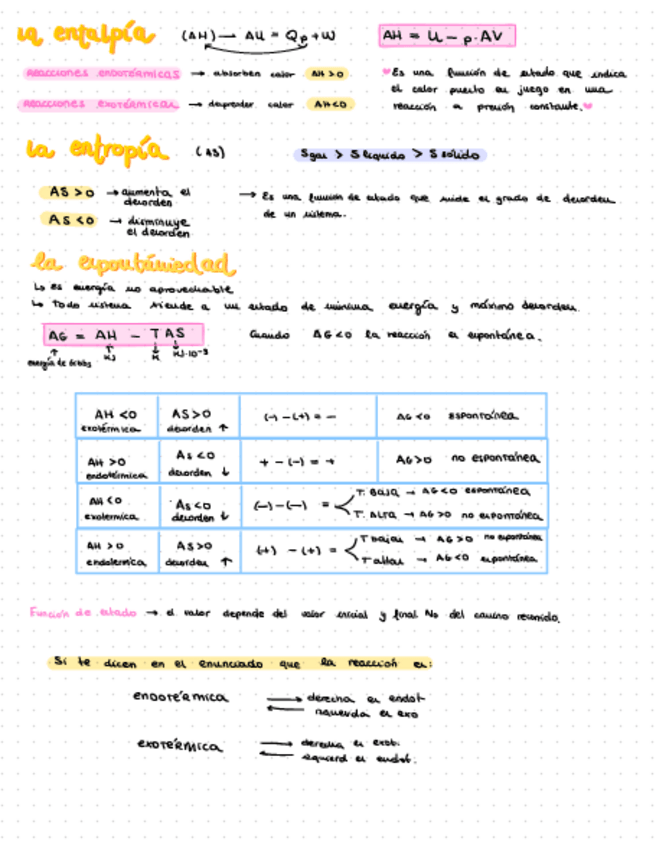 la entalpía (AH) — AU = Qp + W AH = U - p·AV
Reacciones endotérmicas → absorben calor AH > 0
Reacciones exotérmicas → desprender calor AH < 0
Es una función de estado que indica
el calor puesto en juego en una
reacción a presión constante.
la entropía (AS) Sgas > S liquido > S sólido
AS > 0 → aumenta el
desorden
AS < 0 → disminuye
el desorden
→ Es una función de estado que mide el grado de desorden
de un sistema.
la espontaniedad
↳ es energía no aprovechable
↳ Todo sistema tiende a un estado de minima energía y máximo desorden.
AG = AH - T AS Cuando AG < 0 la reacción es espontánea.
energía de Gibbs KJ K KJ·10⁻³
AH < 0 exotérmica AS > 0 desorden ↑ (-) - (+) = - AG < 0 espontánea
AH > 0 endotérmica AS < 0 desorden ↓ + - (-) = + AG > 0 no espontánea
AH < 0 exotermica AS < 0 desorden ↓ (-) - (-) = T. BAJA → AG < 0 espontánea
T. ALTA → AG > 0 no espontánea
AH > 0 endotermica AS > 0 desorden ↑ (+) - (+) = T bajas → AG > 0 no espontánea
T altas → AG < 0 espontánea
Función de estado → el valor depende del valor inicial y final No del camino recorrido.
Si te dicen en el enunciado que la reacción es:
endotérmica derecha es endot
izquierda es exo
exotérmica derecha es exot.
izquierd es endot.